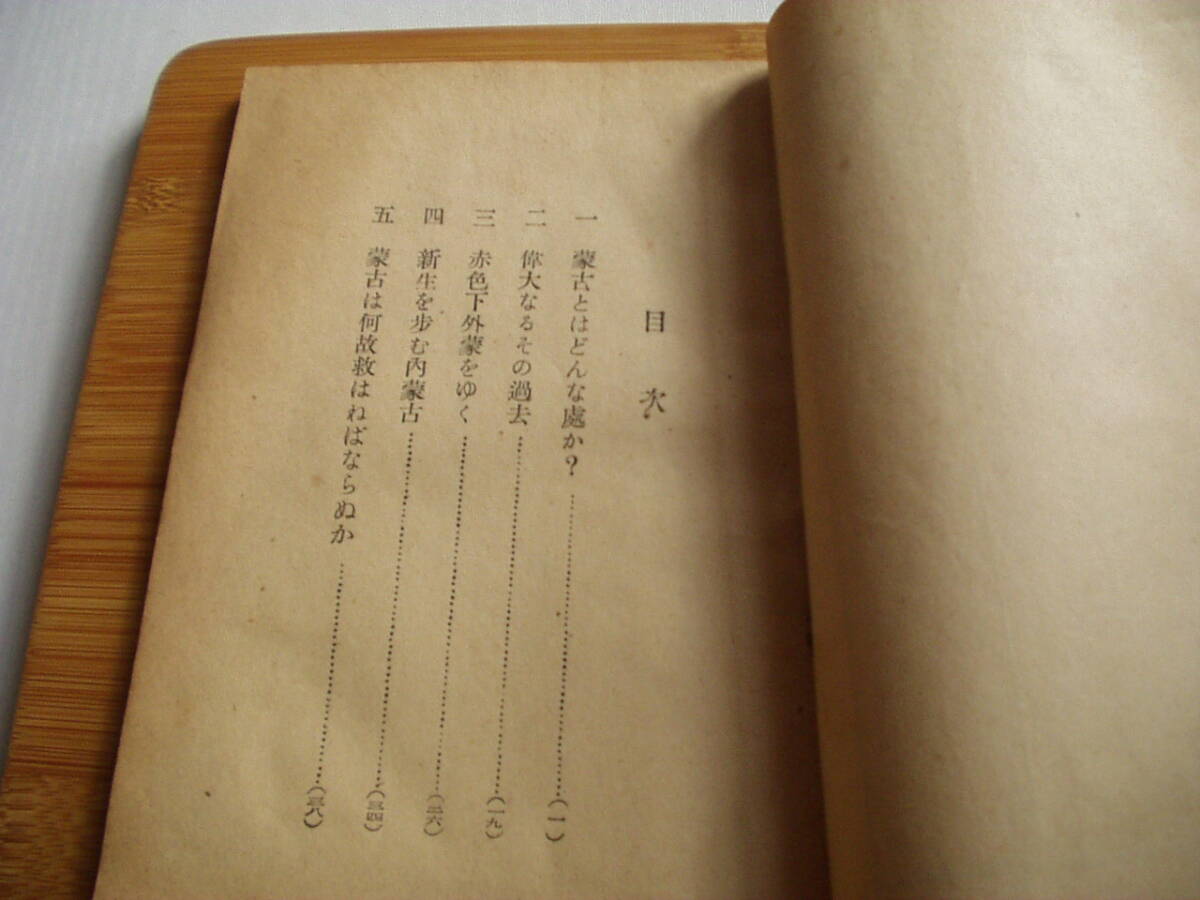 目次
一 蒙古とはどんな處か?……(一)
二 偉大なるその過去……(一九)
三 赤色下外蒙をゆく……(二六)
四 新生を步む內蒙古……(三四)
五 蒙古は何故救はねばならぬか……(三八)